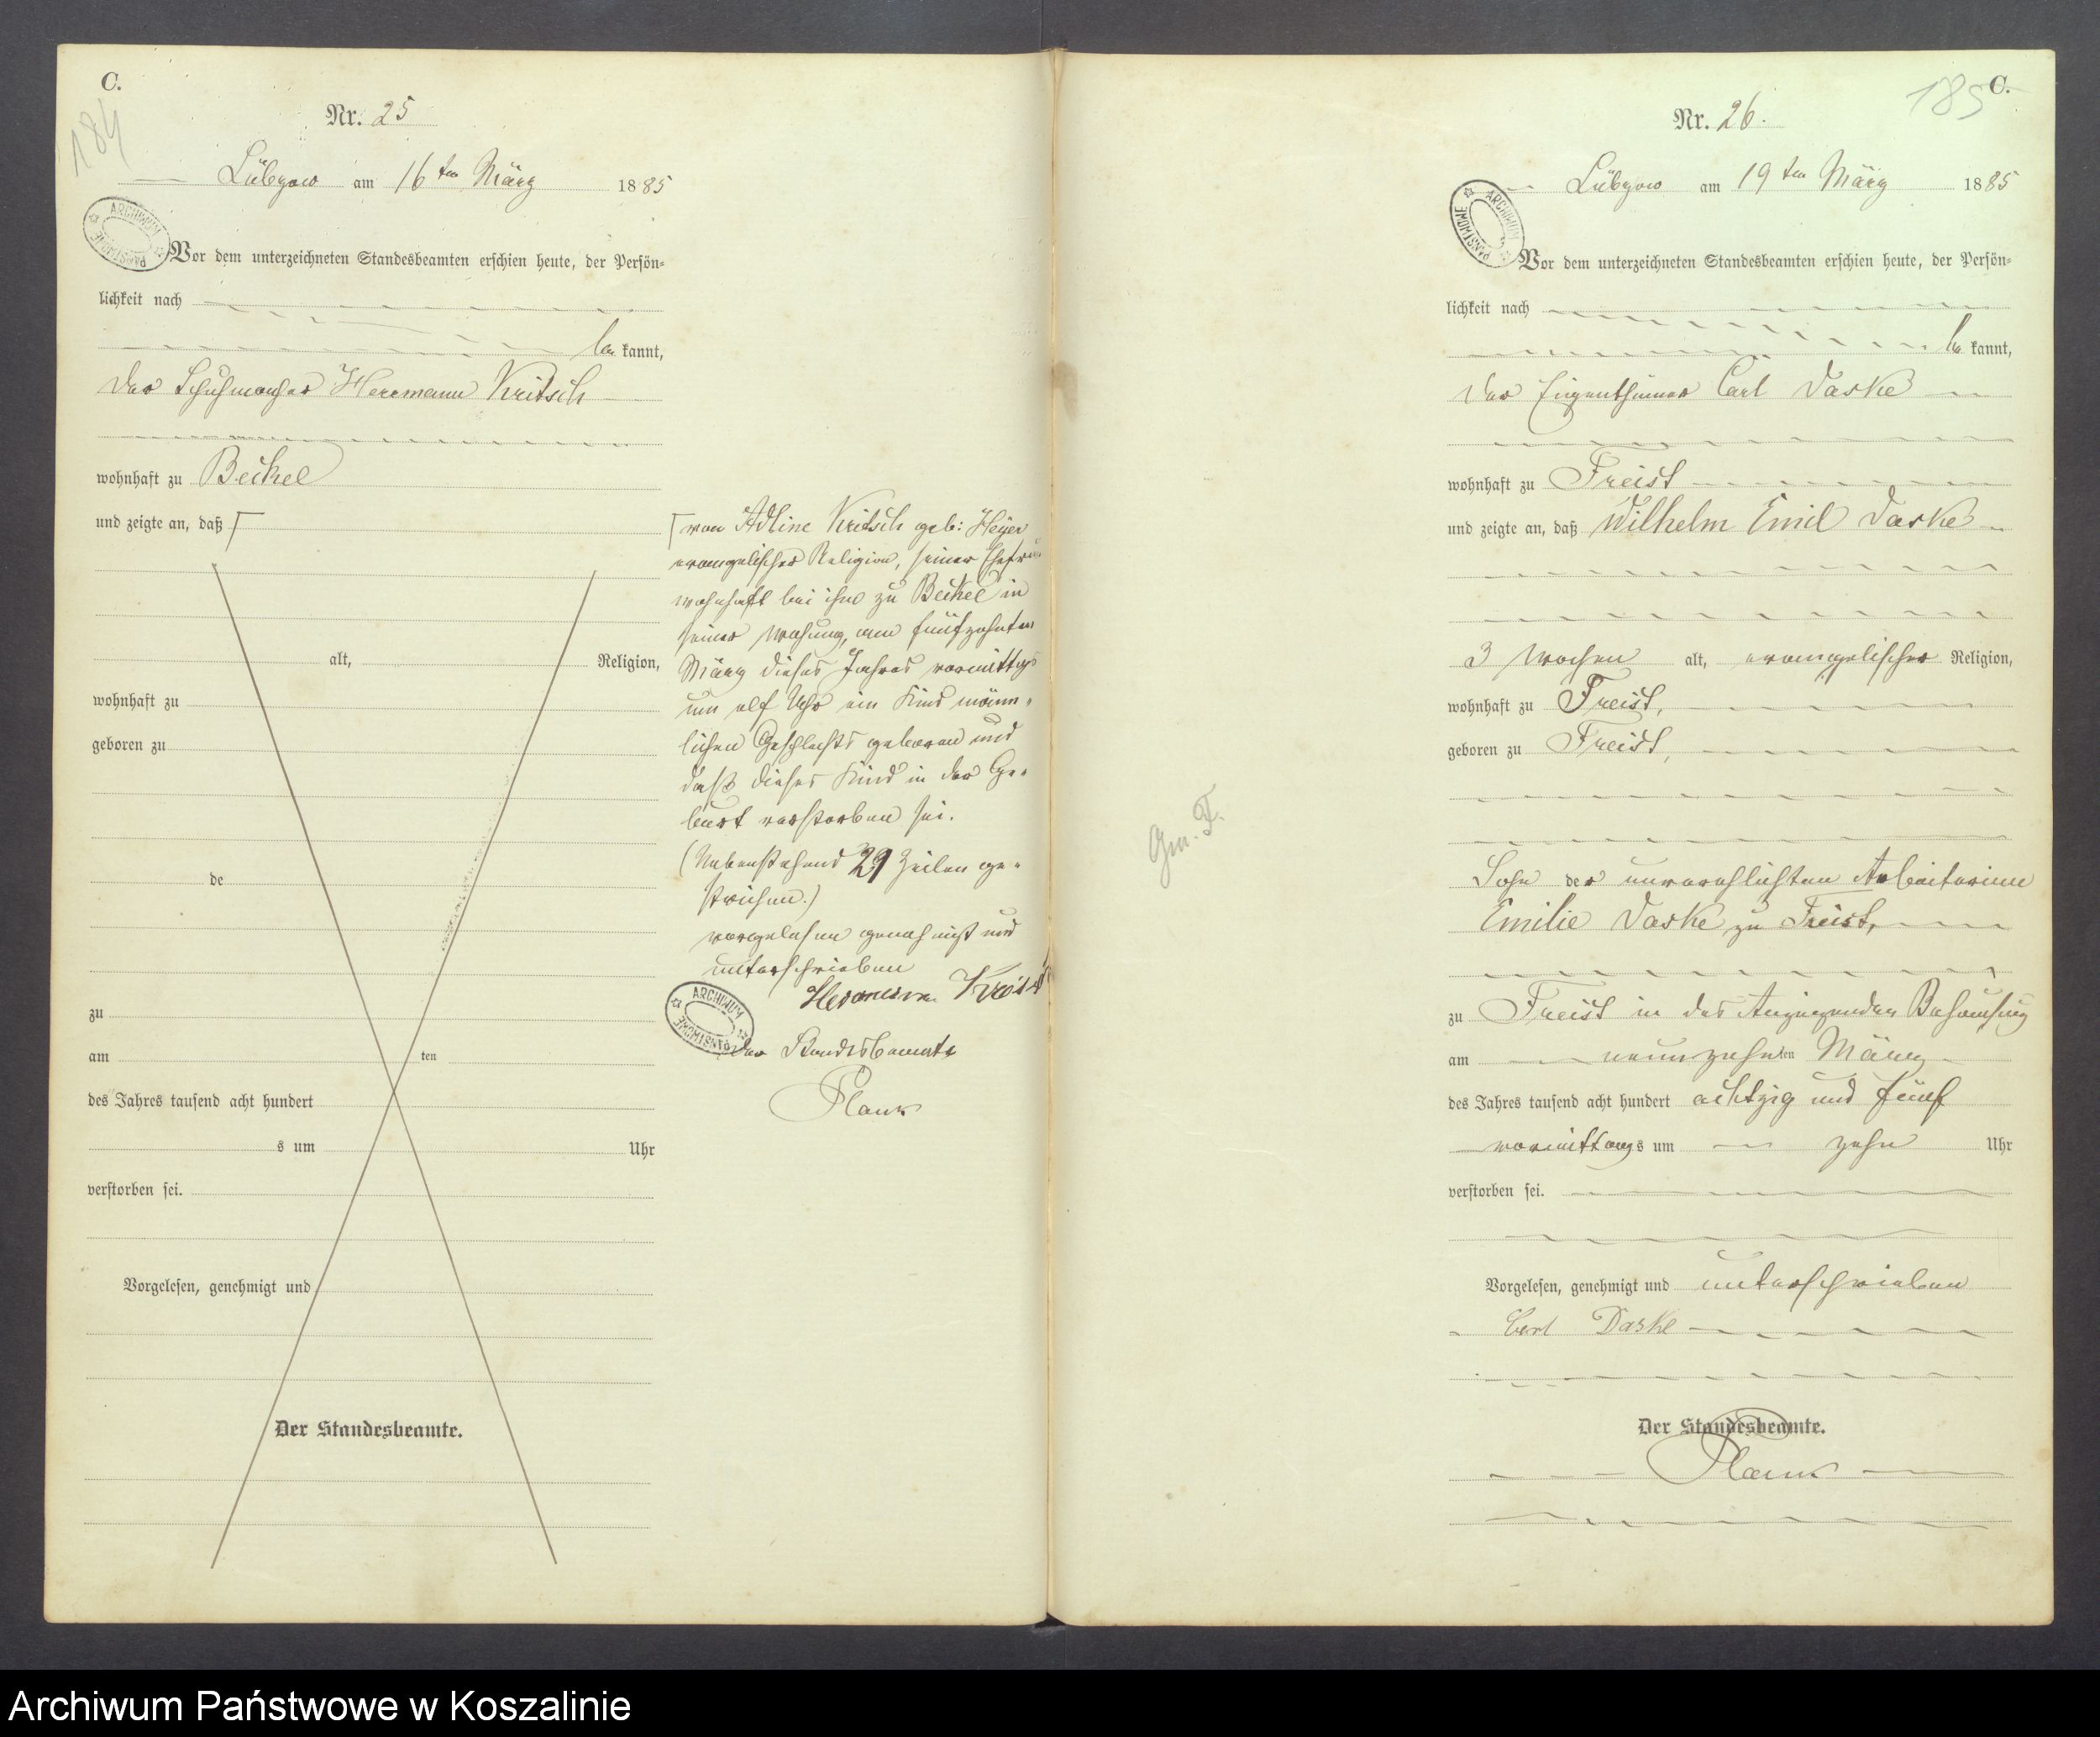 C.
184
Nr. 25
Lübzow am 16ten März 1885
ARCHIWUM PAŃSTWOWE
Vor dem unterzeichneten Standesbeamten erschien heute, der Persön=
lichkeit nach
be kannt,
der Schuhmacher Herrmann Kritsch
wohnhaft zu Beckel
und zeigte an, daß
alt, Religion,
wohnhaft zu
geboren zu
de
zu
am ten
des Jahres tausend acht hundert
s um Uhr
verstorben sei.
Vorgelesen, genehmigt und
Der Standesbeamte.
von Adline Kritsch geb: Heyer
evangelischer Religion, seiner Ehefrau
wohnhaft bei ihm zu Beckel in
seiner Wohung, am fünfzehnten
März dieses Jahres vormittgs
um elf Uhr ein Kind männ=
lichen Geschlechts geboren und
daß dieses Kind in der Ge=
burt verstorben sei.
(Nebenstehend 29 Zeilen ge=
strichen.)
vorgelesen genehmigt und
unterschrieben
Herrmann Kritsch
ARCHIWUM PAŃSTWOWE
Der Standesbeamte
Plank
C.
185
Nr. 26.
Lübzow am 19ten März 1885
ARCHIWUM PAŃSTWOWE
Vor dem unterzeichneten Standesbeamten erschien heute, der Persön=
lichkeit nach
be kannt,
der Eigenthümer Carl Daske
wohnhaft zu Freist
und zeigte an, daß Wilhelm Emil Daske
3 Wochen alt, evangelischer Religion,
wohnhaft zu Freist,
geboren zu Freist,
Sohn der unverehlichten Arbeiterinn
Emilie Daske zu Freist,
zu Freist in des Anzeigenden Behausung
am neunzehnten März
des Jahres tausend acht hundert achtzig und fünf
vormittags um zehn Uhr
verstorben sei.
Vorgelesen, genehmigt und unterschrieben
Carl Daske
Der Standesbeamte.
Plank
Archiwum Państwowe w Koszalinie